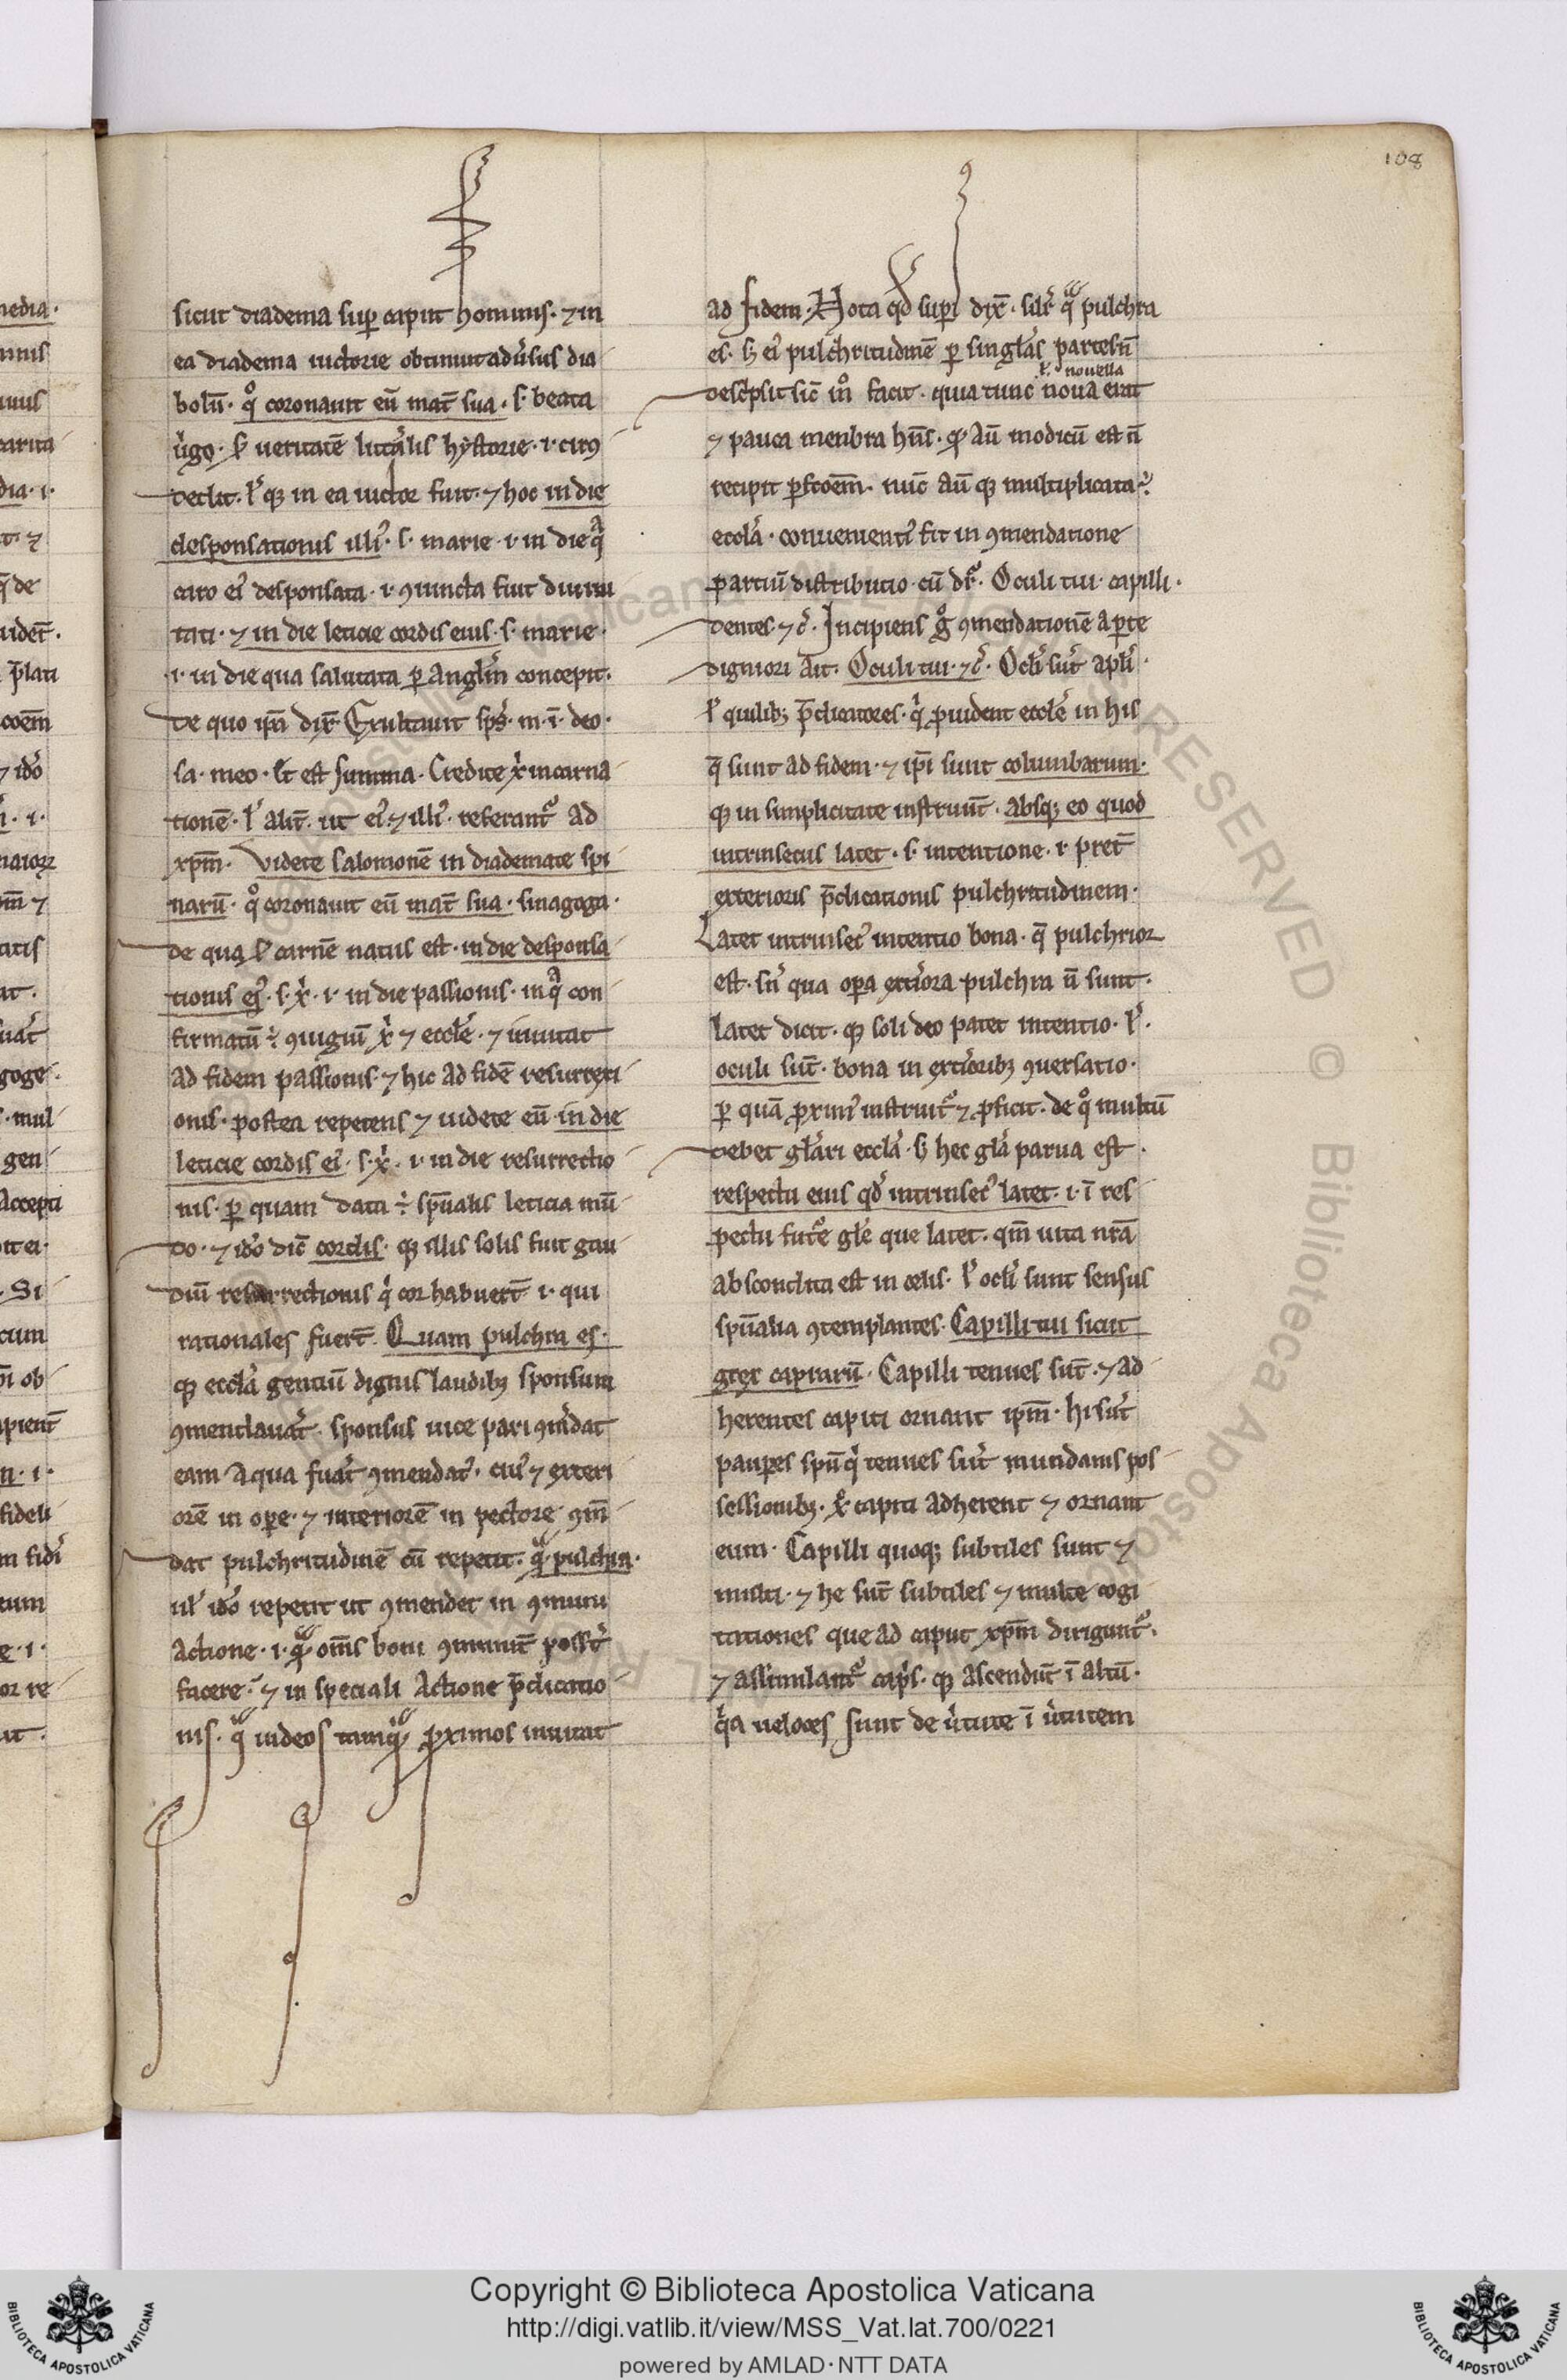 108
sicut diadema sup̱ capiut hominis. ⁊ in
ea diadema uictorie obtinuit adűsus dia
bolũ. qͦ coronauit eũ mat̃ sua. s. beata
uͥgo. sꝫ ueritatẽ litt̃alis hystorie. i. ciuꝯ
declit. lꝰ qꝫ in ea uictor fuit. ⁊ hoc in die
desponsationis illiꝰ. s. marie. i. in die qᵃ
caro eiꝰ desponsata. i. ꝯiuncta fuit diuini
tati. ⁊ in die leticie cordis eius. s. marie.
.i. in die qua salutata ꝑ angĺm concepit.
de quo ip̃a dix̃ Exultauit sp̃s. m. ĩ. deo.
sa. meo. Et est summa. Credite xͥ incarna
tionẽ. lꝰ alit̃. ut eiꝰ. ⁊ illiꝰ. referantᷣ ad
xp̃m. Videte salomonẽ in diademate spi
narũ. qͦ coronauit eũ mat̃ sua. sinagoga.
de qua sꝫ carnẽ natus est. in die desponsa
tionis eiꝰ. s. xͥ. i. in die passionis. in qᵃ con
firmatũ ÷ ꝯiugiũ xͥ ⁊ eccl̃e. ⁊ inuitat
ad fidem passionis. ⁊ hic ad fidẽ resurrexi
onis. postea repetens ⁊ uidete eũ in die
leticie cordis eiꝰ. s. xͥ. i. in die resurrectio
nis. ꝑ quam data ÷ sp̃ualis leticia mũ
do. ⁊ iõ dic̃ cordis. qꝫ illis solis fuit gau
diũ resurrectionis qͥ cor habuert̃ i. qui
rationales fuert̃. Quam pulchra es.
qꝫ eccl̃a gentiũ dignis laudibꝫ sponsum
ꝯmendauat̃. sponsus uice pari ꝯm̃dat
eam a qua fuat̃ ꝯmendatꝰ. cuiꝰ ⁊ exteri
orẽ in oꝑe. ⁊ interiorẽ in pectore ꝯm̃
dat pulchritudinẽ cũ repetit. qᵃ pulchra.
uĺ iõ repetit ut ꝯmendet in ꝯmuni
actione. i. qᵃ om̃s boni ꝯmunit̃ poss̃t
facere. ⁊ in speciali actione p̃dicatio
nis. qᵃ iudeos tamqᵃ ꝓximos inuitat
ad fidem. Nota qd̃ supͥ dix̃. silr̃ qᵃ pulchra
es. sꝫ eiꝰ pulchritudinẽ ꝑ singĺas partes ñ
ĺ. nouella
desc̃psit sic̃ mͦ facit. quia tunc noua erat
⁊ pauca menbra hñs. qꝫ aũ modicũ est ñ
recipit ꝑtic̃oẽm. nũc aũ qꝫ multiplicata ÷
eccl̃a. conuenientꝰ fit in ꝯmendatione
partiũ distributio. cũ drᷣ. Oculi tui. capilli.
dentes ⁊ c̃. Incipiens gͦ ꝯmendationẽ a ꝑte
digniori ait. Oculi tui. ⁊ c̃. Ocl̃i sũt apĺi.
lꝰ quilibꝫ p̃dicatores. qͥ ꝓuident eccl̃e in his
q̃ sunt ad fidem. ⁊ ip̃i sunt columbarum.
qꝫ in simplicitate instruũt. absqꝫ eo quod
intrinsecus latet. s. intentione. i. pret̃
exterioris p̃dicationis pulchritudinem.
Latet intrinsecꝰ intentio bona. q̃ pulchrior
est. sñ qua oꝑa extĩora pulchra ñ sunt.
latet dicit. qꝫ soli deo patet intentio. lꝰ.
oculi sũt. bona in extĩoribꝫ ꝯuersatio.
ꝑ quã ꝓximꝰ instruitᷣ ⁊ ꝓficit. de qͦ multũ
debet gĺari eccl̃a. sꝫ hec gĺa parua est.
respectu eius qd̃ intrinsecꝰ latet. i. ĩ res
pectu futᷣe gĺe que latet. qm̃ uita nr̃a
abscondita est in celis. lꝰ ocl̃i sunt sensus
sp̃ualia ꝯtemplantes. Capilli tui sicut
grex caprarũ. Capilli tenues sũt. ⁊ ad
herentes capiti ornant ip̃m. hi sũt
pauꝑes sp̃u qͥ tenues sũt mundanis pos
sessionibꝫ. xͦ capiti adherent ⁊ ornant
eum. Capilli quoqꝫ subtiles sunt ⁊
multi. ⁊ he sũt subtiles ⁊ multe cogi
tationes que ad caput xp̃m diriguntᷣ.
⁊ assimilantᷣ capͥs. qꝫ ascendũt ĩ altũ.
qͥa ueloces sunt de uͥtute ĩ uͥtutem
Copyright © Biblioteca Apostolica Vaticana
http://digi.vatlib.it/view/MSS_Vat.lat.700/0221
powered by AMLAD · NTT DATA
BIBLIOTECA APOSTOLICA VATICANA
BIBLIOTECA APOSTOLICA VATICANA